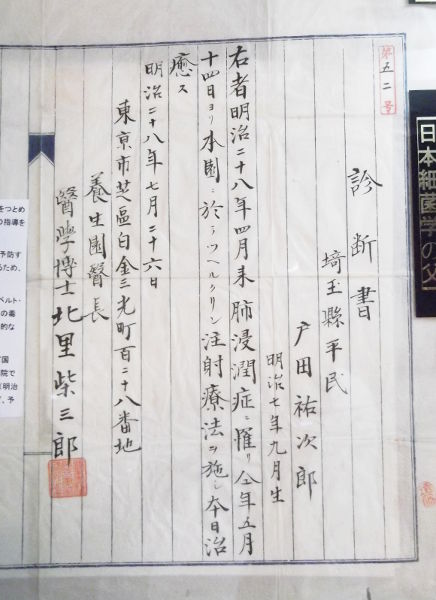 第五二号
診断書
埼玉縣平民
戸田祐次郎
明治七年九月生
右者明治二十八年四月来肺浸潤症ニ罹リ仝年五月
十四日ヨリ本園ニ於テツベルクリン注射療法ヲ施シ本日治
癒ス
明治二十八年七月二十六日
東京市芝區白金三光町百二十八番地
養生園醫長
醫學博士北里柴三郎
日本細菌学の父
をつとめ
の指導を
予防す
るため、
ベルト・
の毒
的な
国
院で
明治
、予